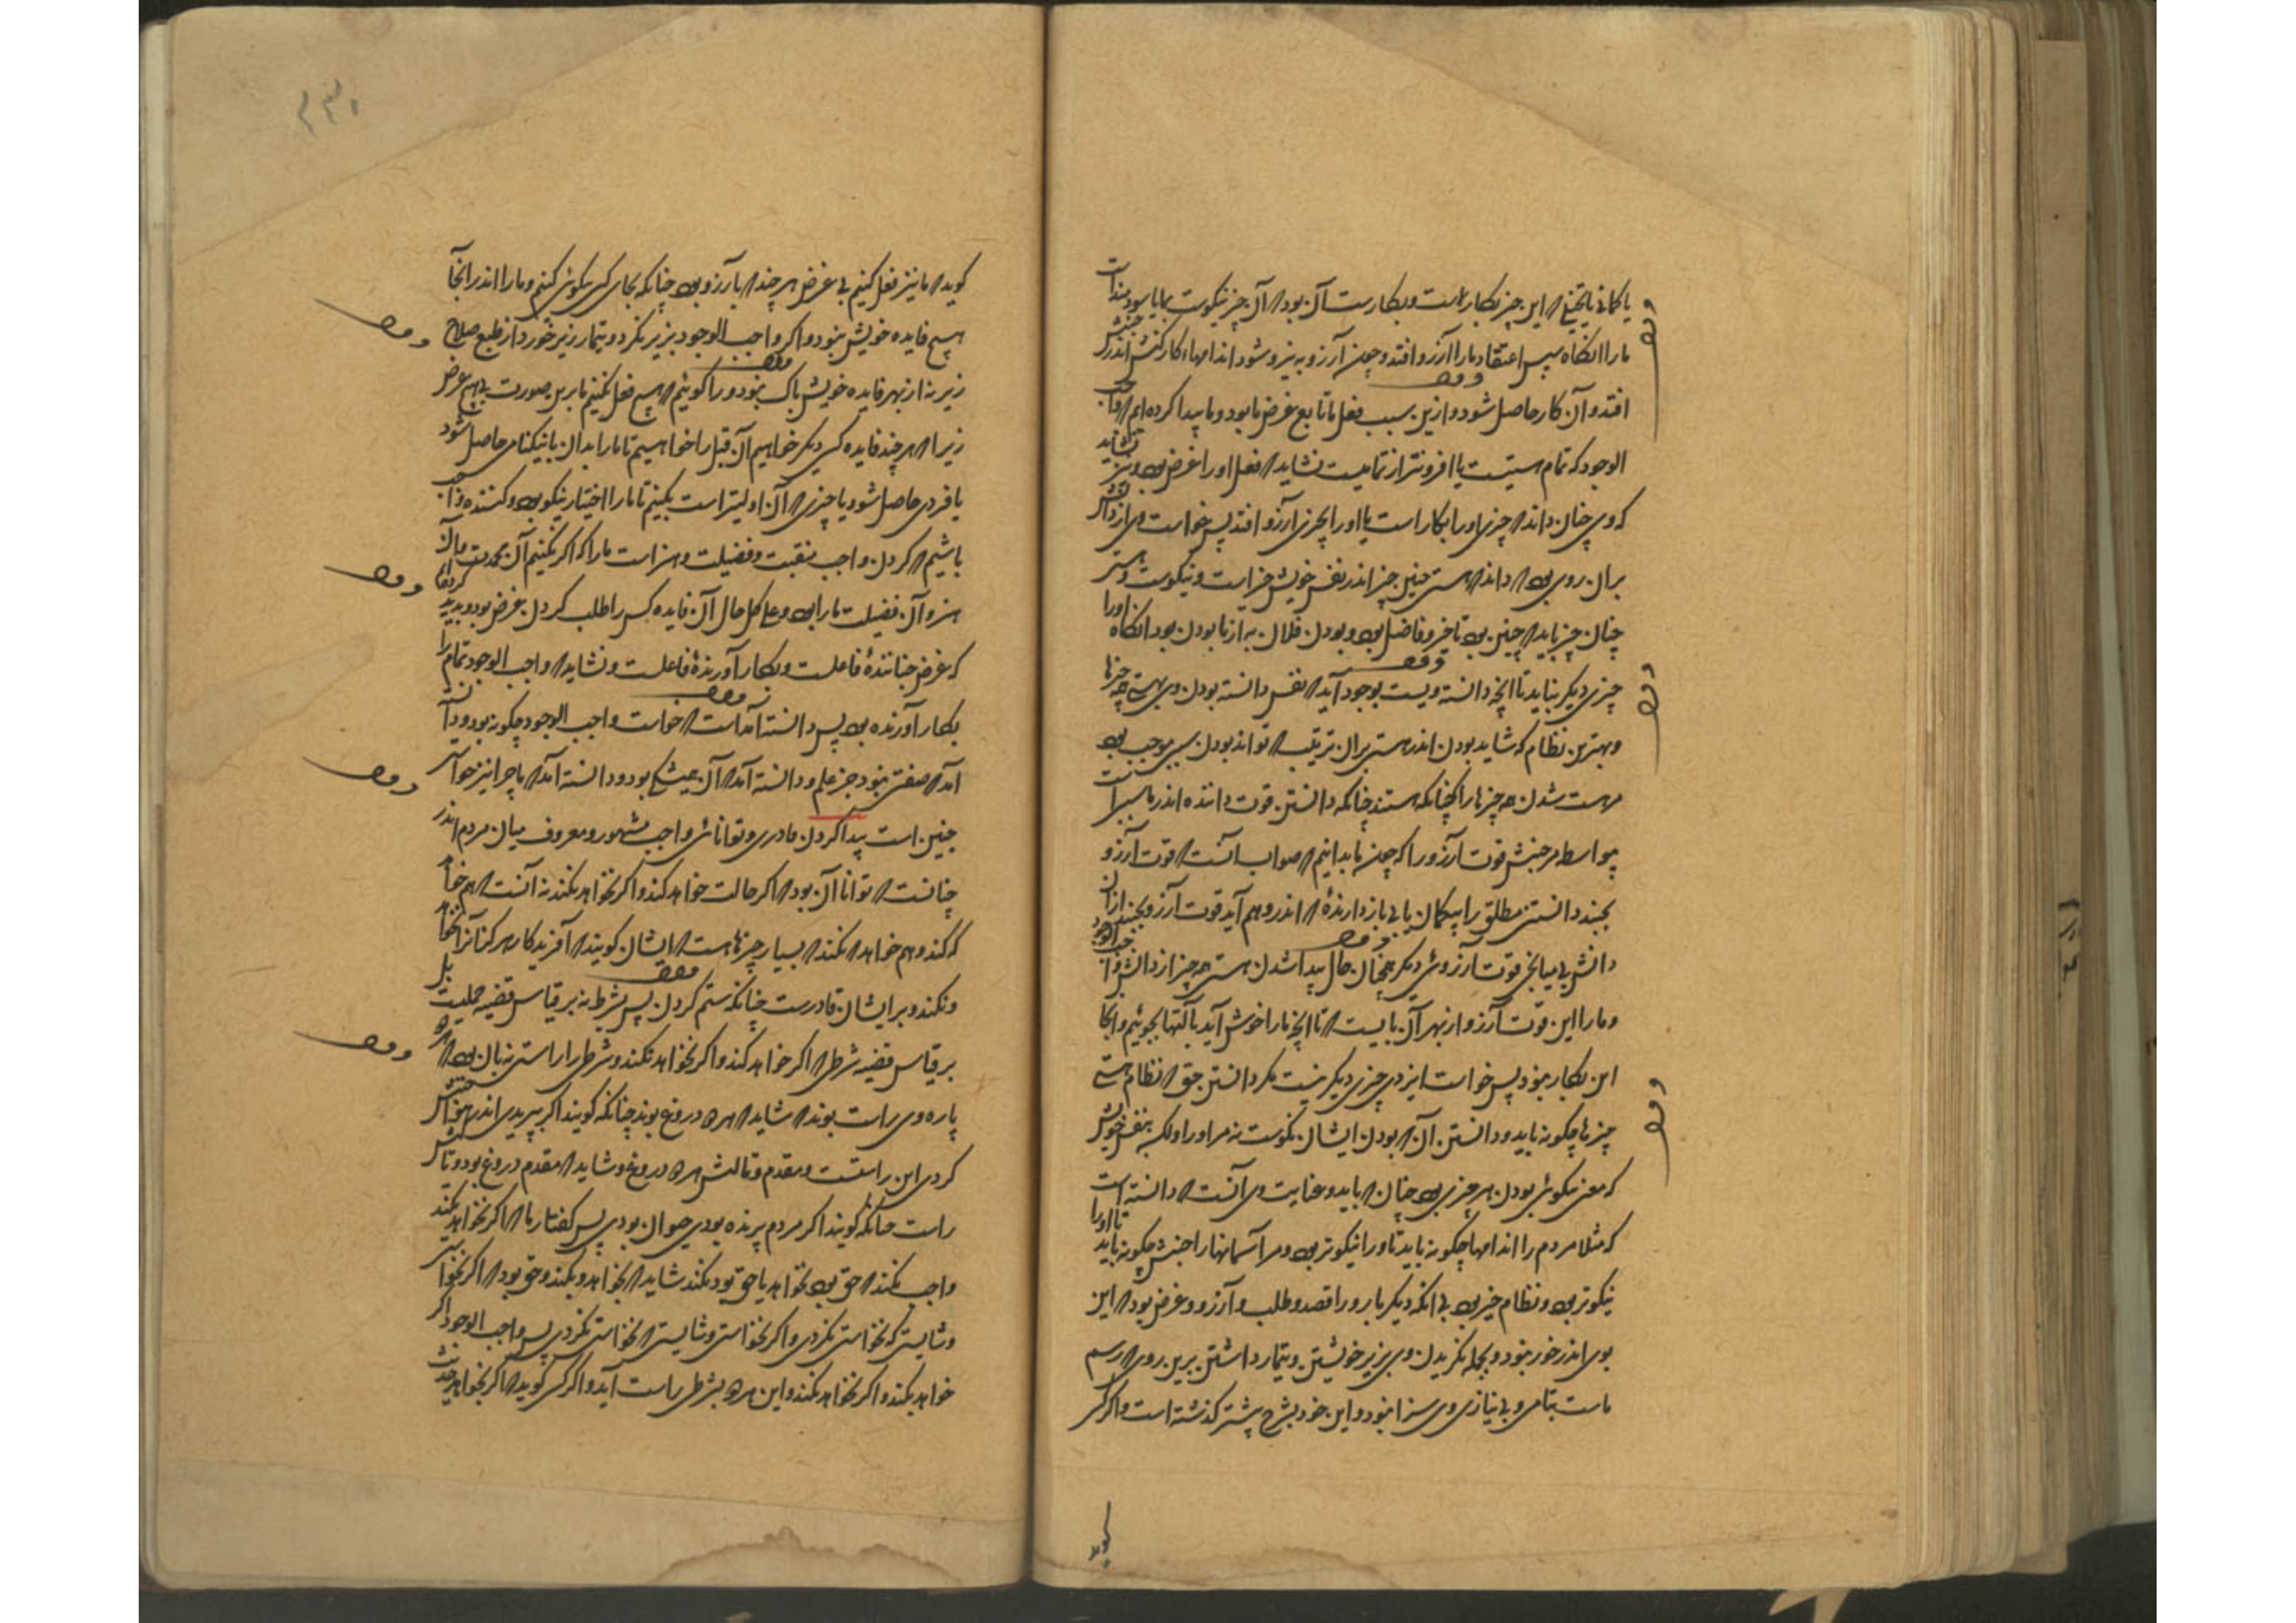 یا کمانی یا تخیلی که این چیز بکار است و بکار ست آن بود که آن چیز نیکوست یا ما را سودمند است
ما را آنکاه سپس اعتقاد ما را آرزو افتد و چون آرزو به نیرو شود اندامهاء کارکنش اندر جنبش
افتد و آن کار حاصل شود و ازین سبب فعل ما تابع غرض ما بود و ما پیدا کرده ایم که واجب
الوجود که تمام هستیست یا افزونتر از تمامیست نشاید که فعل او را غرض بود و نیز نشاید
که وی چنان داند که چیزی او را بکار است یا او را بچیزی آرزو افتد پس خواست وی از دانش
بر آن روی بود که داند که هستی چنین چیز اندر نفس خویش خیر است و نیکوست و هستی
چنان چیز باید که چنین بود تا خیر و فاضل بود و بودن فلان به از نابودن بود آنکاه او را
چیزی دیگر نباید تا آنچه دانسته ویست بوجود آید که نفس دانسته بودن وی هستی همه چیزها
و بهترین نظام که شاید بودن اندر هستی بر آن ترتیب که تواند بودن سببی موجب بود
مر هست شدن همه چیزها را چنانکه هستند چنانکه دانستن قوت داننده اندر ما سبب است
بیواسطه مر جنبش قوت آرزو را که چون ما بدانیم که صواب آنست که قوت آرزو
بجنبد دانستن مطلق را بیکمان یا بی بازدارنده که اندر وهم آید قوت آرزو بجنبد از آن
دانش بی میانجی قوت آرزوئی دیگر همچنان حال پیدا شدن هستی همه چیز از دانش واجب الوجود
و ما را این قوت آرزو از بهر آن بایست که تا آنچه ما را خوش آید بآلتها بجوئیم و آنجا
این بکار نبود پس خواست ایزدی چیزی دیگر نیست مگر دانستن حق که نظام هستی
چیزها چگونه باید و دانستن آن که بودن ایشان نکوست نه مر او را و لکن بنفس خویش
که معنی نیکوئی بودن هر چیزی بود چنان که باید و عنایت وی آنست که دانسته است
که مثلا مردم را اندامها چگونه باید تا ورا نیکوتر بود و مر آسمانها را جنبش چگونه باید تا او را
نیکوتر بود و نظام خیر بود بی آنکه دیگر بار ورا قصد و طلب و آرزو و غرض بود که این
بوی اندر خور نبود و بجمله نگریدن وی بزیر خویشتن و تیمار داشتن برین روی که رسم
ماست بتمامی و بی نیازی وی سزا نبود و این خود بشرح پیشتر گذشته است و اگر کسی
گوید
گوید که ما نیز فعل کنیم بی غرض هر چند که با آرزو بود چنانکه بجای کسی نیکوئی کنیم و ما را اندر آنجا
هیچ فایده خویش نبود و اگر واجب الوجود بزیر نگرد و تیمار زیر خورد از طبع صلاح
زیر نه از بهر فایده خویش باک نبود ورا گوئیم که هیچ فعل نکنیم ما برین صورت بی هیچ غرض
زیرا که هر چند فایده کسی دیگر خواهیم آن قبل را خواهیم تا ما را بدان یا نیکنامی حاصل شود
یا فردی حاصل شود یا چیزی که آن اولیتر است بکنیم تا ما را اختیار نیکو بود و کننده واجب
باشیم که کردن واجب منقبت و فضیلت و هنر است ما را که اگر نکنیم آن محمدت و آن
هنر و آن فضیلت ما را نبود و علی کل حال آن فایده کس را طلب کردن غرض بود و پدید کرده ایم
که غرض جنباننده فاعلست و بکار آورنده فاعلست و نشاید که واجب الوجود تمام را
بکار آورنده بود پس دانسته آمد است که خواست واجب الوجود چگونه بود و دانسته
آمد که صفتی نبود جز علم و دانسته آمد که آن همیشگی بود و دانسته آمد که ما چرا نیز خواست
چنین است پیدا کردن قادری و توانائی واجب مشهور و معروف میان مردم اندر
چنانست که توانا آن بود که اگر حالت خواهد کند و اگر نخواهد نکند نه آنست که هم خواهد
که کند و هم خواهد که نکند که بسیار چیزها است که ایشان گویند که آفریدگار هر گز آنرا نخواهد
و نکند و بر ایشان قادرست چنانکه ستم کردن پس شرط نه بر قیاس قضیه حملیست بل
بر قیاس قضیه شرطی که اگر خواهد کند و اگر نخواهد نکند و شرطی را راستی نه بآن بود که هر دو
پاره وی راست بوند که شاید که هر دو دروغ بوند چنانکه گویند اگر بپریدی اندر هوا جنبش
کردی این راستست و مقدم و تالیش هر دو دروغ و شاید که مقدم دروغ بود و تالیش
راست چنانکه گویند اگر مردم پرنده بودی حیوان بودی پس گفتار ما که اگر نخواهد نکند
واجب نکند که حق بود نخواهد یا حق بود نکند شاید که بخواهد و بکند و حق بود که اگر نخواستی
و شایستی که نخواستی نکردی و اگر نخواستی و شایستی که نخواستی نکردی پس واجب الوجود اگر
خواهد بکند و اگر نخواهد نکند و این هر دو بشرطی راست آید و اگر کسی گوید که اگر نخواهد